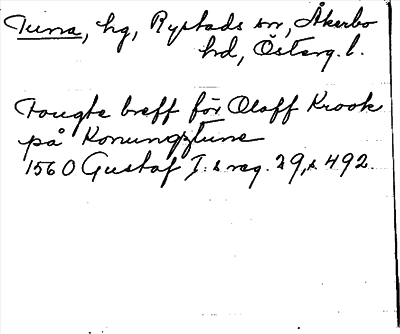 Tuna, hg, Rystads sn, Åkerbo
hd, Österg. l.
Fougte breff för Oloff Krook
på Konungztune
1560 Gustaf I:s reg. 29, s 492.